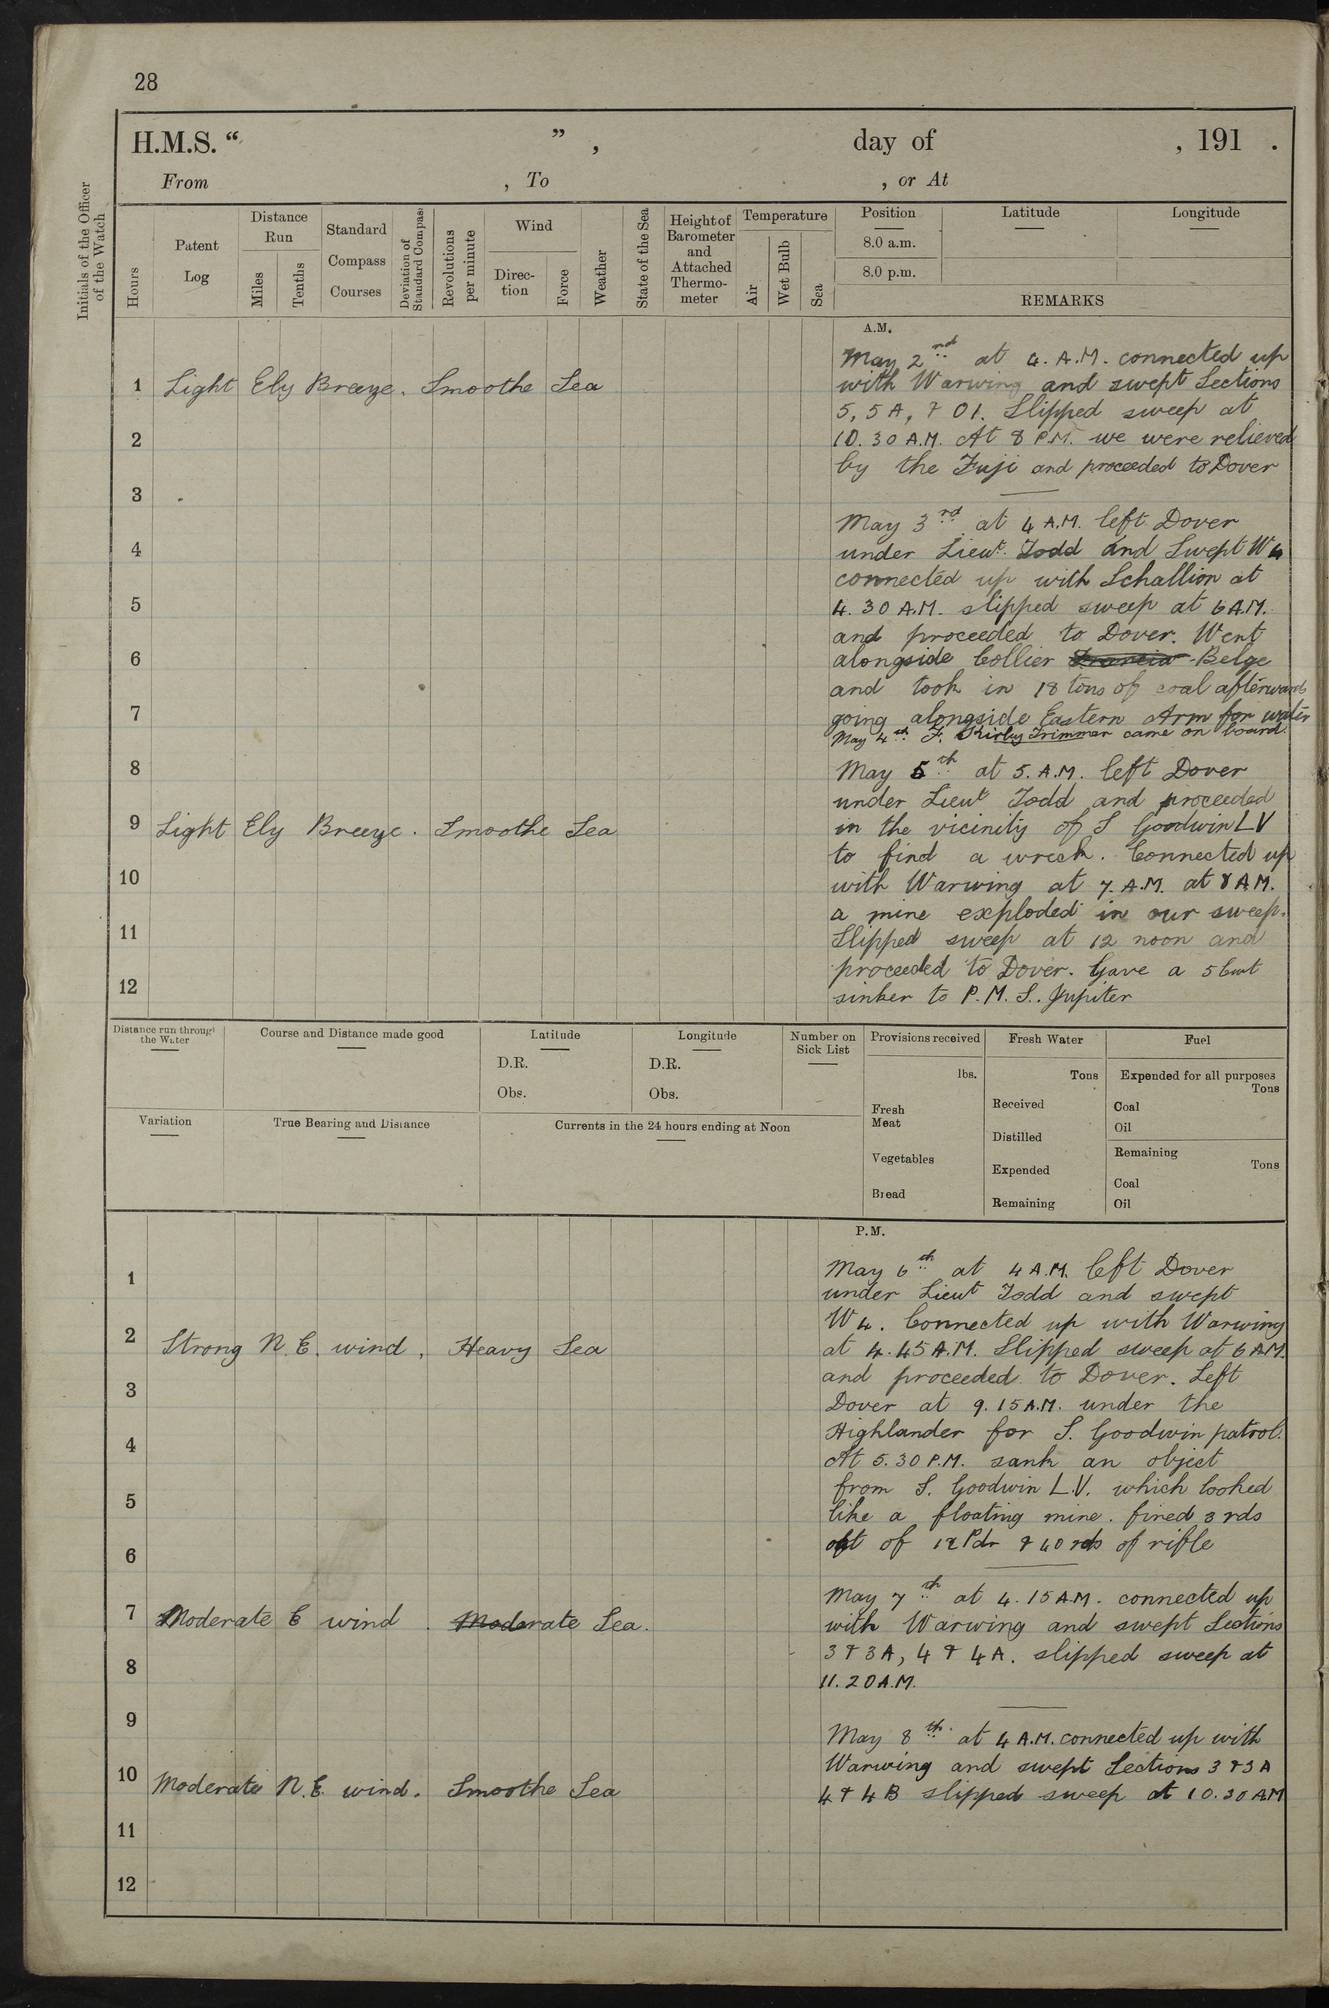 28
H.M.S. “ ” , day of , 191 .
From , To , or At
Initials of the Officer
of the Watch
Hours
Patent
Log
Distance
Run
Miles
Tenths
Standard
Compass
Courses
Deviation of
Standard Compass
Revolutions
per minute
Wind
Direc-
tion
Force
Weather
State of the Sea
Height of
Barometer
and
Attached
Thermo-
meter
Temperature
Air
Wet Bulb
Sea
Position
8.0 a.m.
8.0 p.m.
Latitude
Longitude
REMARKS
A.M.
May 2nd at 4. A.M. connected up
with Warwing and swept Sections
5, 5A, & 01. Slipped sweep at
10.30 A.M. At 8 P.M. we were relieved
by the Fuji and proceeded to Dover
May 3rd at 4 A.M. left Dover
under Lieut. Todd and Swept W4
connected up with Schallion at
4.30 A.M. slipped sweep at 6 A.M.
and proceeded to Dover. Went
alongside Collier Francia Belge
and took in 18 tons of coal afterwards
going alongside Eastern Arm for water
May 4th F. Kirby Trimmer came on board.
May 5th at 5. A.M. left Dover
under Lieut Todd and proceeded
in the vicinity of S Goodwin LV
to find a wreck. Connected up
with Warwing at 7. A.M. at 8 A.M.
a mine exploded in our sweep.
Slipped sweep at 12 noon and
proceeded to Dover. Gave a 5 Cwt
sinker to P.M.S. Jupiter
1 Light Ely Breeze. Smoothe Sea
2
3
4
5
6
7
8
9 Light Ely Breeze. Smoothe Sea
10
11
12
Distance run through
the Water
Course and Distance made good
Latitude
D.R.
Obs.
Longitude
D.R.
Obs.
Number on
Sick List
Provisions received
lbs.
Fresh
Meat
Vegetables
Bread
Fresh Water
Tons
Received
Distilled
Expended
Remaining
Fuel
Expended for all purposes
Tons
Coal
Oil
Remaining
Tons
Coal
Oil
Variation
True Bearing and Distance
Currents in the 24 hours ending at Noon
P.M.
May 6th at 4 A.M. left Dover
under Lieut Todd and swept
W4. Connected up with Warwing
at 4.45 A.M. Slipped sweep at 6 A.M.
and proceeded to Dover. Left
Dover at 9.15 A.M. under the
Highlander for S. Goodwin patrol.
At 5.30 P.M. sank an object
from S. Goodwin L.V. which looked
like a floating mine. fired 3 rds
of 12 Pdr & 40 rds of rifle
May 7th at 4.15 A.M. connected up
with Warwing and swept Sections
3 & 3A, 4 & 4A. slipped sweep at
11.20 A.M.
May 8th at 4 A.M. connected up with
Warwing and swept Sections 3 & 3A
4 & 4B slipped sweep at 10.30 AM
1
2 Strong N.E. wind, Heavy Sea
3
4
5
6
7 Moderate E wind. Moderate Sea.
8
9
10 Moderate N.E. wind. Smoothe Sea
11
12